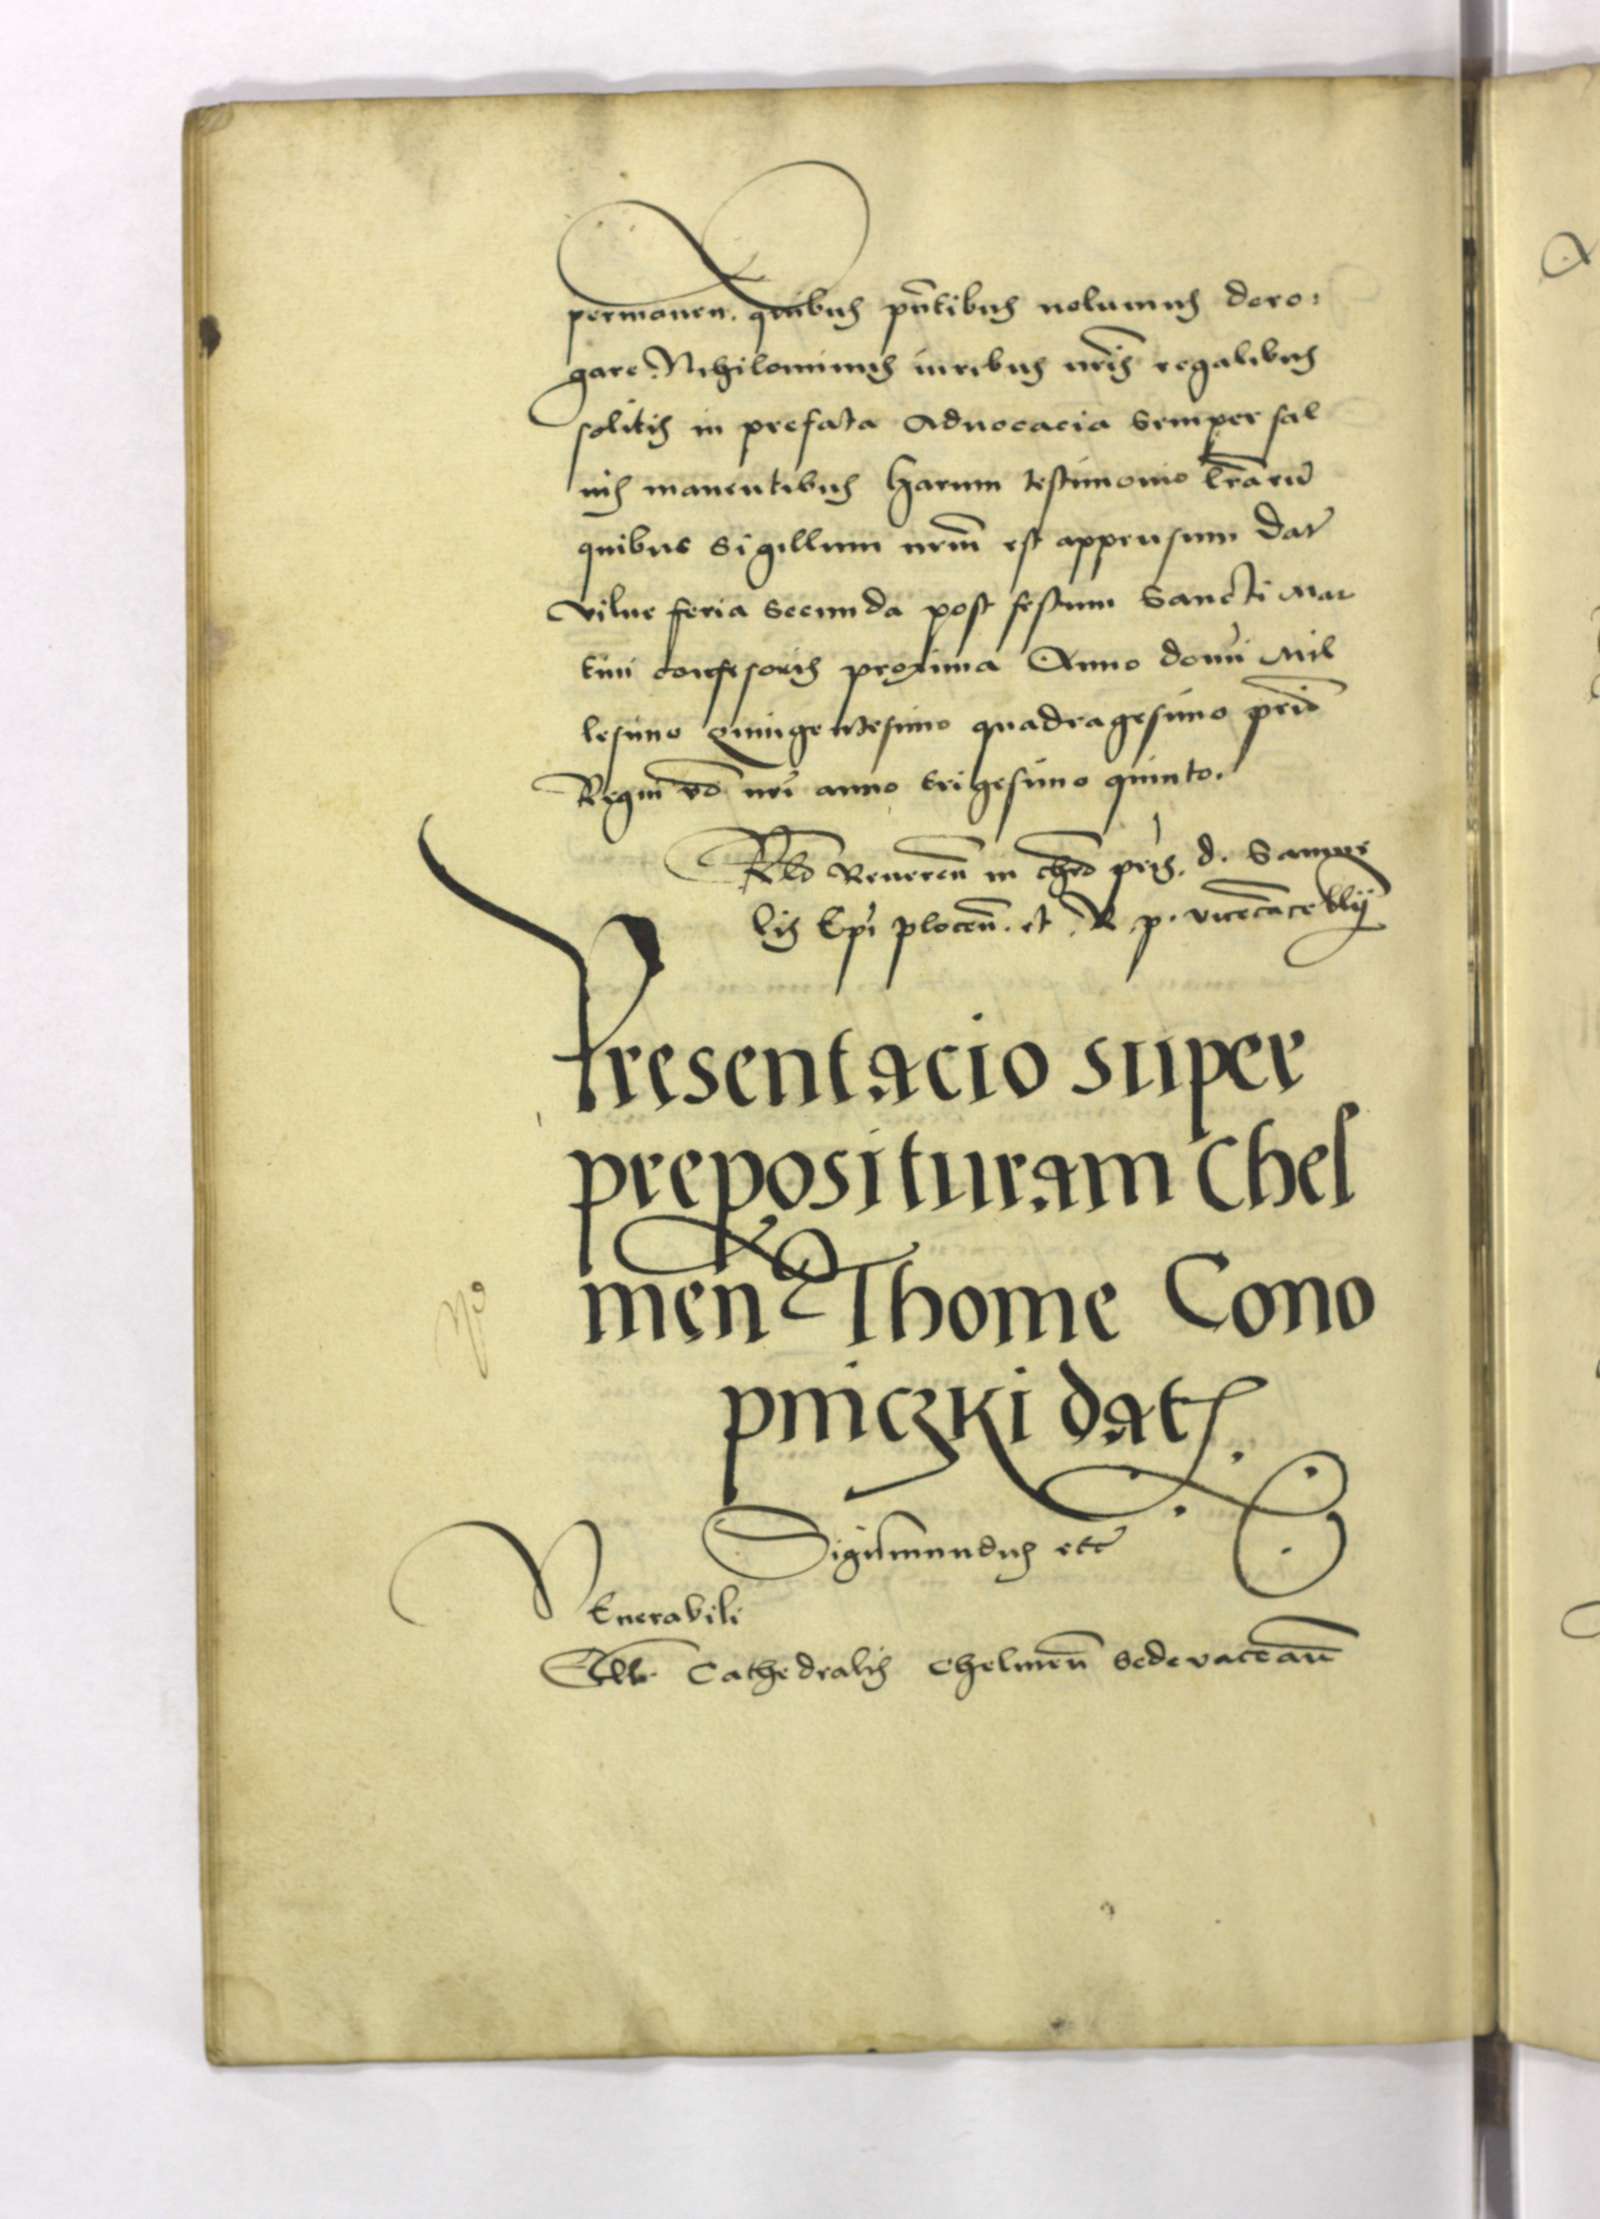 permanen. quibus pñtibus nolumus dero:
gare. Nihilominus iuribus nris regalibus
solitis in prefata Advocacia semper sal
uis manentibus Harum testimonio lrarũ
quibus Sigillum nrm̃ est appensum Dat
vilne feria secunda post festum Sancti Mar
tini confesoris proxima Anno domi Mil
lesimo quingentesimo quadragesimo primo
Regni vo nri anno trigesimo quinto.
Rlo Reueren in chro pris. d. Samue
lis Epi plocen̄. et R. p. vicecancellrij
Presentacio super
preposituram Chel
men Thome Cono
pniczki dat.
Sigismundus etc
Venerabili
Ecclie Cathedralis Chelmen̄ Sedevacan̄